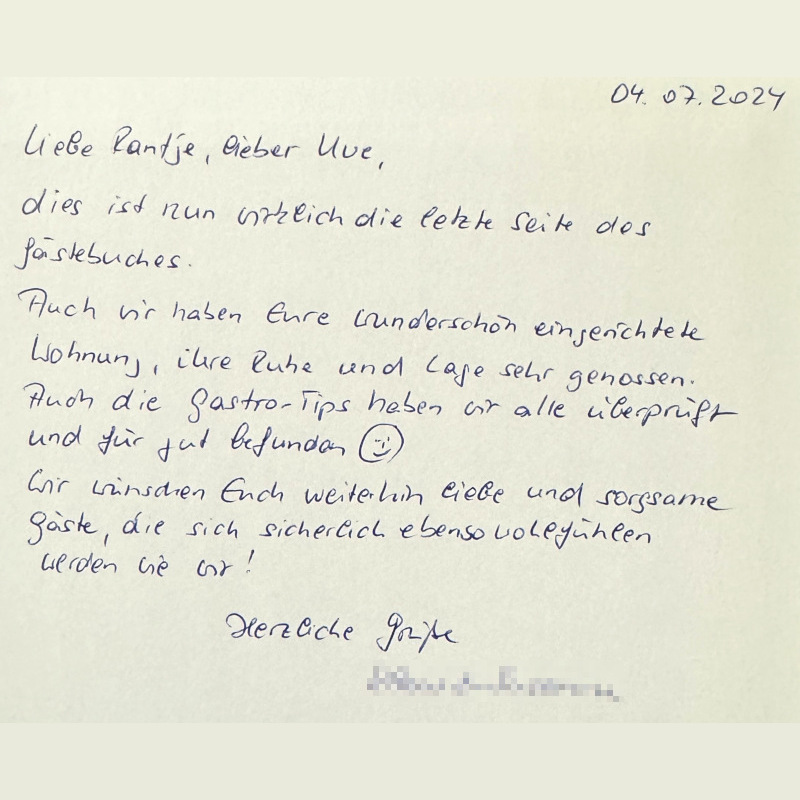 04. 07. 2024
Liebe Rantje, lieber Uwe,
dies ist nun wirklich die letzte Seite des
Gästebuches.
Auch wir haben Eure wunderschön eingerichtete
Wohnung, ihre Ruhe und Lage sehr genossen.
Auch die Gastro-Tips haben wir alle überprüft
und für gut befunden
Wir wünschen Euch weiterhin liebe und sorgsame
Gäste, die sich sicherlich ebenso wohlfühlen
werden wie wir!
Herzliche Grüße